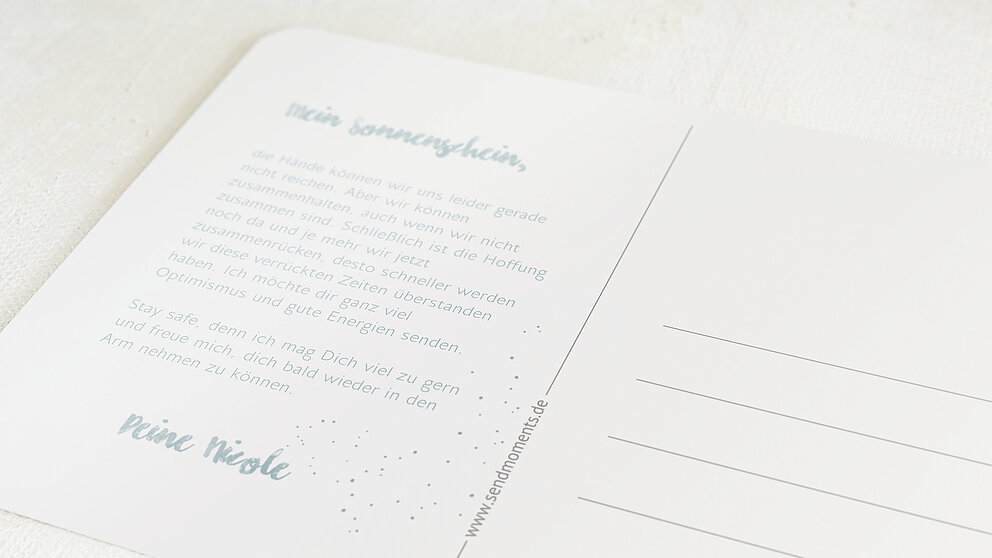 Mein Sonnenschein,
die Hände können wir uns leider gerade
nicht reichen. Aber wir können
zusammenhalten, auch wenn wir nicht
zusammen sind. Schließlich ist die Hoffung
noch da und je mehr wir jetzt
zusammenrücken, desto schneller werden
wir diese verrückten Zeiten überstanden
haben. Ich möchte dir ganz viel
Optimismus und gute Energien senden.
Stay safe, denn ich mag Dich viel zu gern
und freue mich, dich bald wieder in den
Arm nehmen zu können.
Deine Nicole
www.sendmoments.de